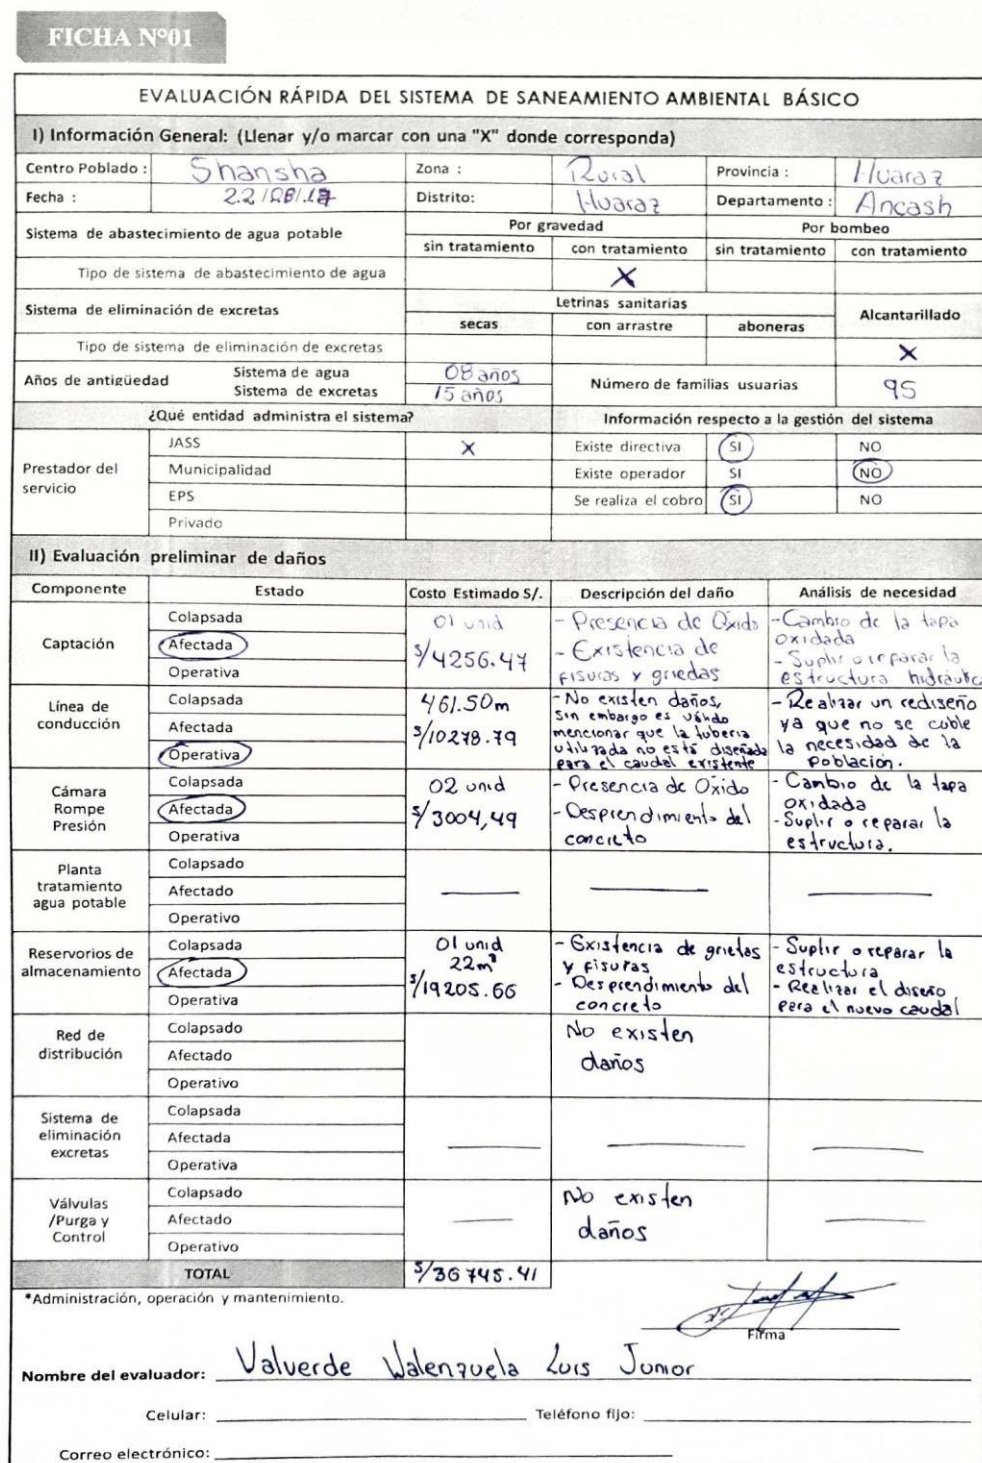 FICHA N°01
EVALUACIÓN RÁPIDA DEL SISTEMA DE SANEAMIENTO AMBIENTAL BÁSICO
I) Información General: (Llenar y/o marcar con una "X" donde corresponda)
Centro Poblado : Shansha Zona : Rural Provincia : Huaraz
Fecha : 22/08/17 Distrito: Huaraz Departamento : Ancash
Sistema de abastecimiento de agua potable Por gravedad Por bombeo
sin tratamiento con tratamiento sin tratamiento con tratamiento
Tipo de sistema de abastecimiento de agua X
Sistema de eliminación de excretas Letrinas sanitarias Alcantarillado
secas con arrastre aboneras
Tipo de sistema de eliminación de excretas X
Años de antigüedad Sistema de agua 08 años Número de familias usuarias 95
Sistema de excretas 15 años
¿Qué entidad administra el sistema? Información respecto a la gestión del sistema
Prestador del servicio JASS X Existe directiva SI NO
Municipalidad Existe operador SI NO
EPS Se realiza el cobro SI NO
Privado
II) Evaluación preliminar de daños
Componente Estado Costo Estimado S/. Descripción del daño Análisis de necesidad
Captación
Colapsada
Afectada
Operativa
01 unid
S/4256.47
- Presencia de Oxido
- Existencia de
fisuras y griedas
- Cambio de la tapa
oxidada
- Suplir o reparar la
estructura hidráulica
Línea de
conducción
Colapsada
Afectada
Operativa
461.50m
S/10278.79
- No existen daños,
sin embargo es válido
mencionar que la tuberia
utilizada no está diseñada
para el caudal existente
- Realizar un rediseño
ya que no se cuble
la necesidad de la
población.
Cámara
Rompe
Presión
Colapsada
Afectada
Operativa
02 unid
S/3004,49
- Presencia de Oxido
- Desprendimiento del
concreto
- Cambio de la tapa
oxidada
- Suplir o reparar la
estructura.
Planta
tratamiento
agua potable
Colapsado
Afectado
Operativo
Reservorios de
almacenamiento
Colapsada
Afectada
Operativa
01 unid
22m³
S/19205.66
- Existencia de grietas
y fisuras
- Desprendimiento del
concreto
- Suplir o reparar la
estructura
- Realizar el diseño
para el nuevo caudal
Red de
distribución
Colapsado
Afectado
Operativo
No existen
daños
Sistema de
eliminación
excretas
Colapsada
Afectada
Operativa
Válvulas
/Purga y
Control
Colapsado
Afectado
Operativo
No existen
daños
TOTAL S/36745.41
*Administración, operación y mantenimiento.
Firma
Nombre del evaluador: Valverde Walenzuela Luis Junior
Celular: Teléfono fijo:
Correo electrónico: